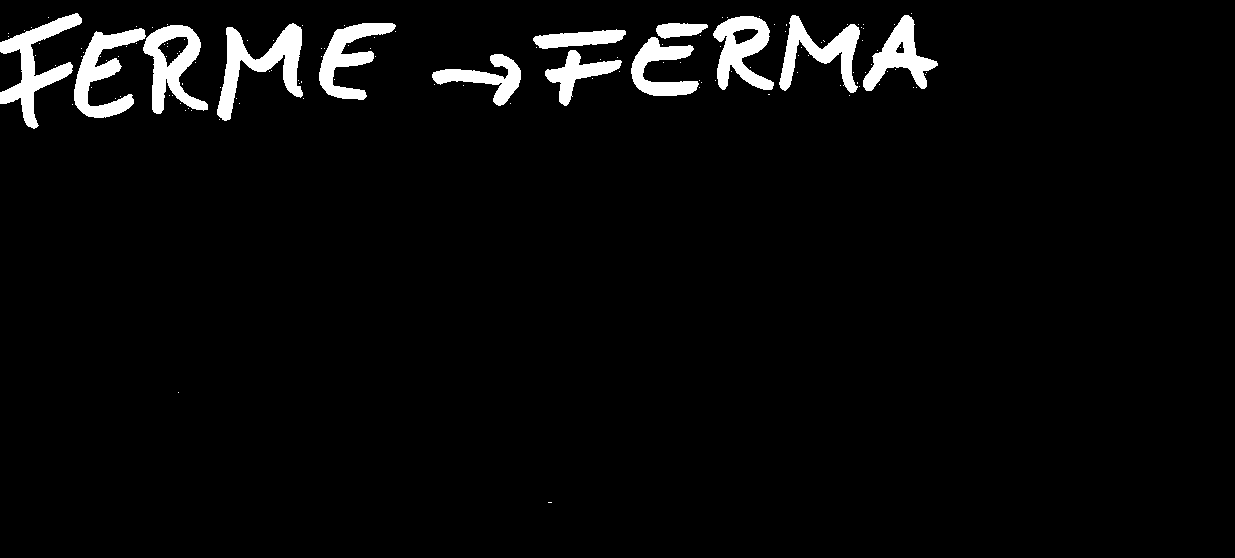 FERME → FERMA